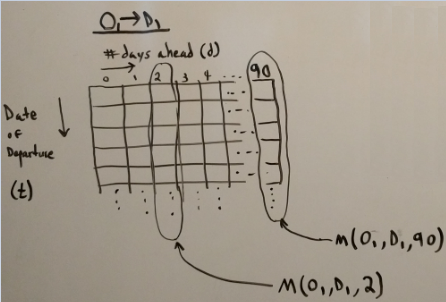 O₁→D₁
# days ahead (d)
0 1 2 3 4 ..... 90
Date
of
Departure
(t)
M(O₁,D₁,90)
M(O₁,D₁,2)